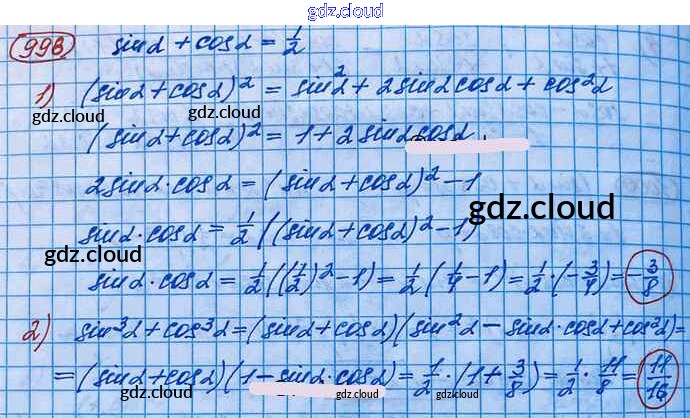 gdz.cloud
998 sinα + cosα = 1/2
1) (sinα + cosα)² = sin²α + 2sinαcosα + cos²α
gdz.cloud
gdz.cloud
(sinα + cosα)² = 1 + 2sinαcosα.
2sinα·cosα = (sinα + cosα)² - 1
gdz.cloud
sinα·cosα = 1/2 ((sinα + cosα)² - 1)
gdz.cloud
sinα·cosα = 1/2((1/2)² - 1) = 1/2(1/4 - 1) = 1/2·(-3/4) = -3/8
gdz.cloud
2) sin³α + cos³α = (sinα + cosα)(sin²α - sinα·cosα + cos²α) =
= (sinα + cosα)(1 - sinα·cosα) = 1/2·(1 + 3/8) = 1/2·11/8 = 11/16
gdz.cloud
gdz.cloud